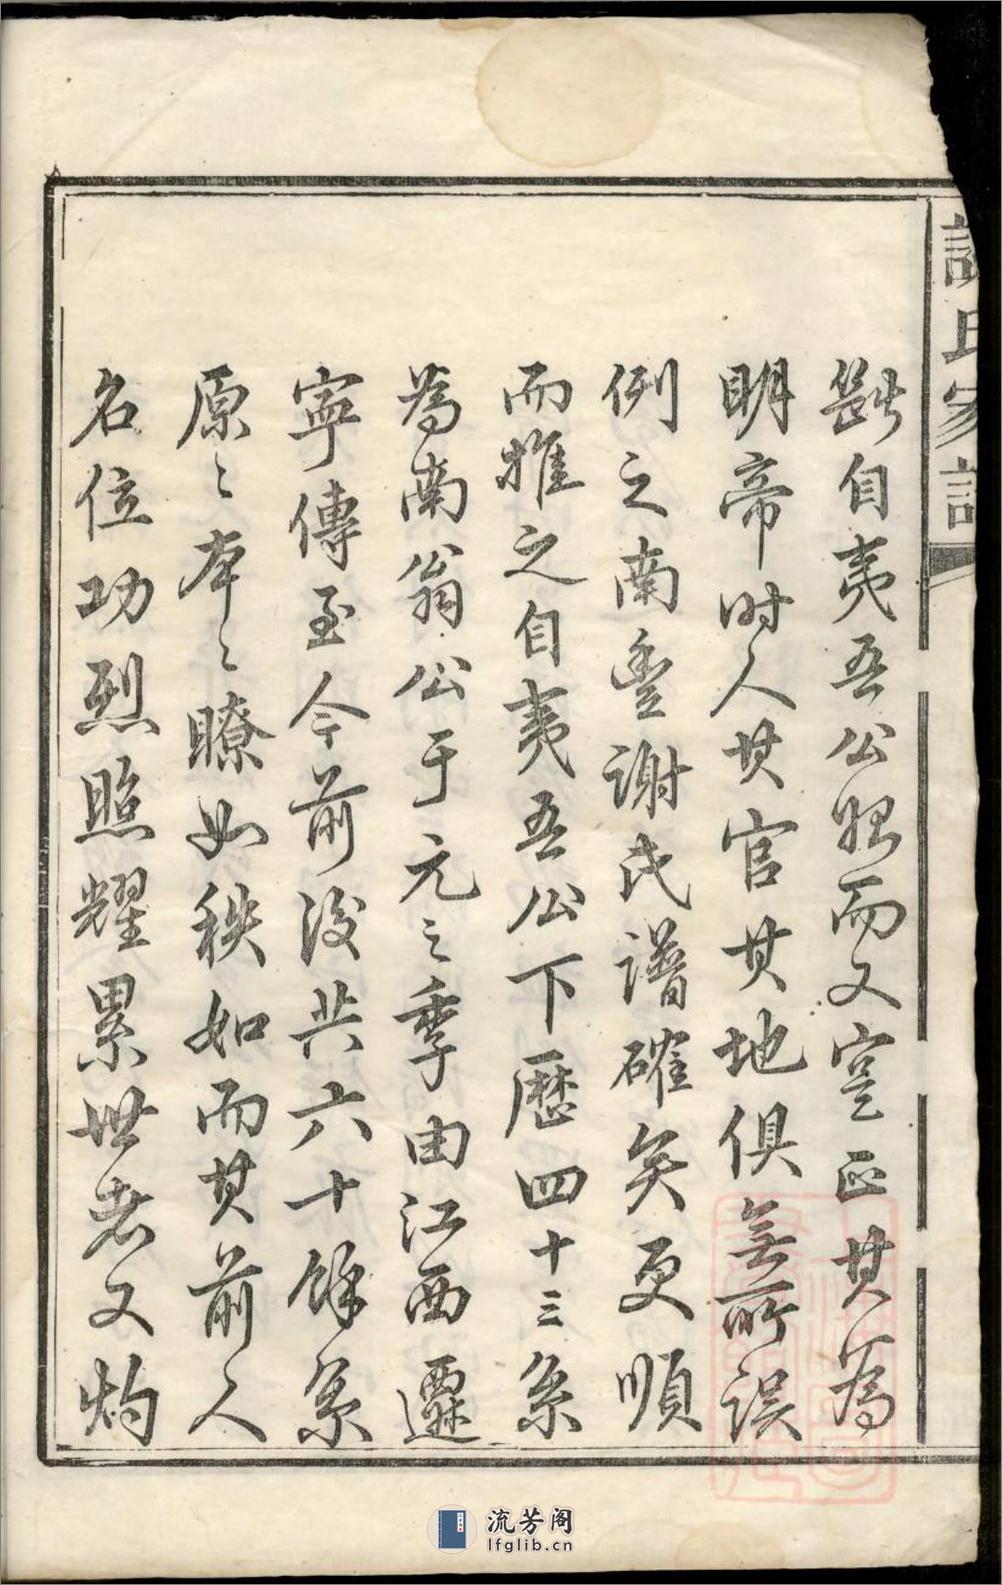 謝氏家譜
斷自夷吾公始而又寔正其為
明帝时人其官其地俱無所誤
例之南豐謝氏譜確矣更順
而推之自夷吾公下歷四十三系
為南翁公于元之季由江西遷
寧傳至今前後共六十餘系
原〻本〻瞭如秩如而其前人
名位功烈照耀累世者又灼
流芳阁
lfglib.cn